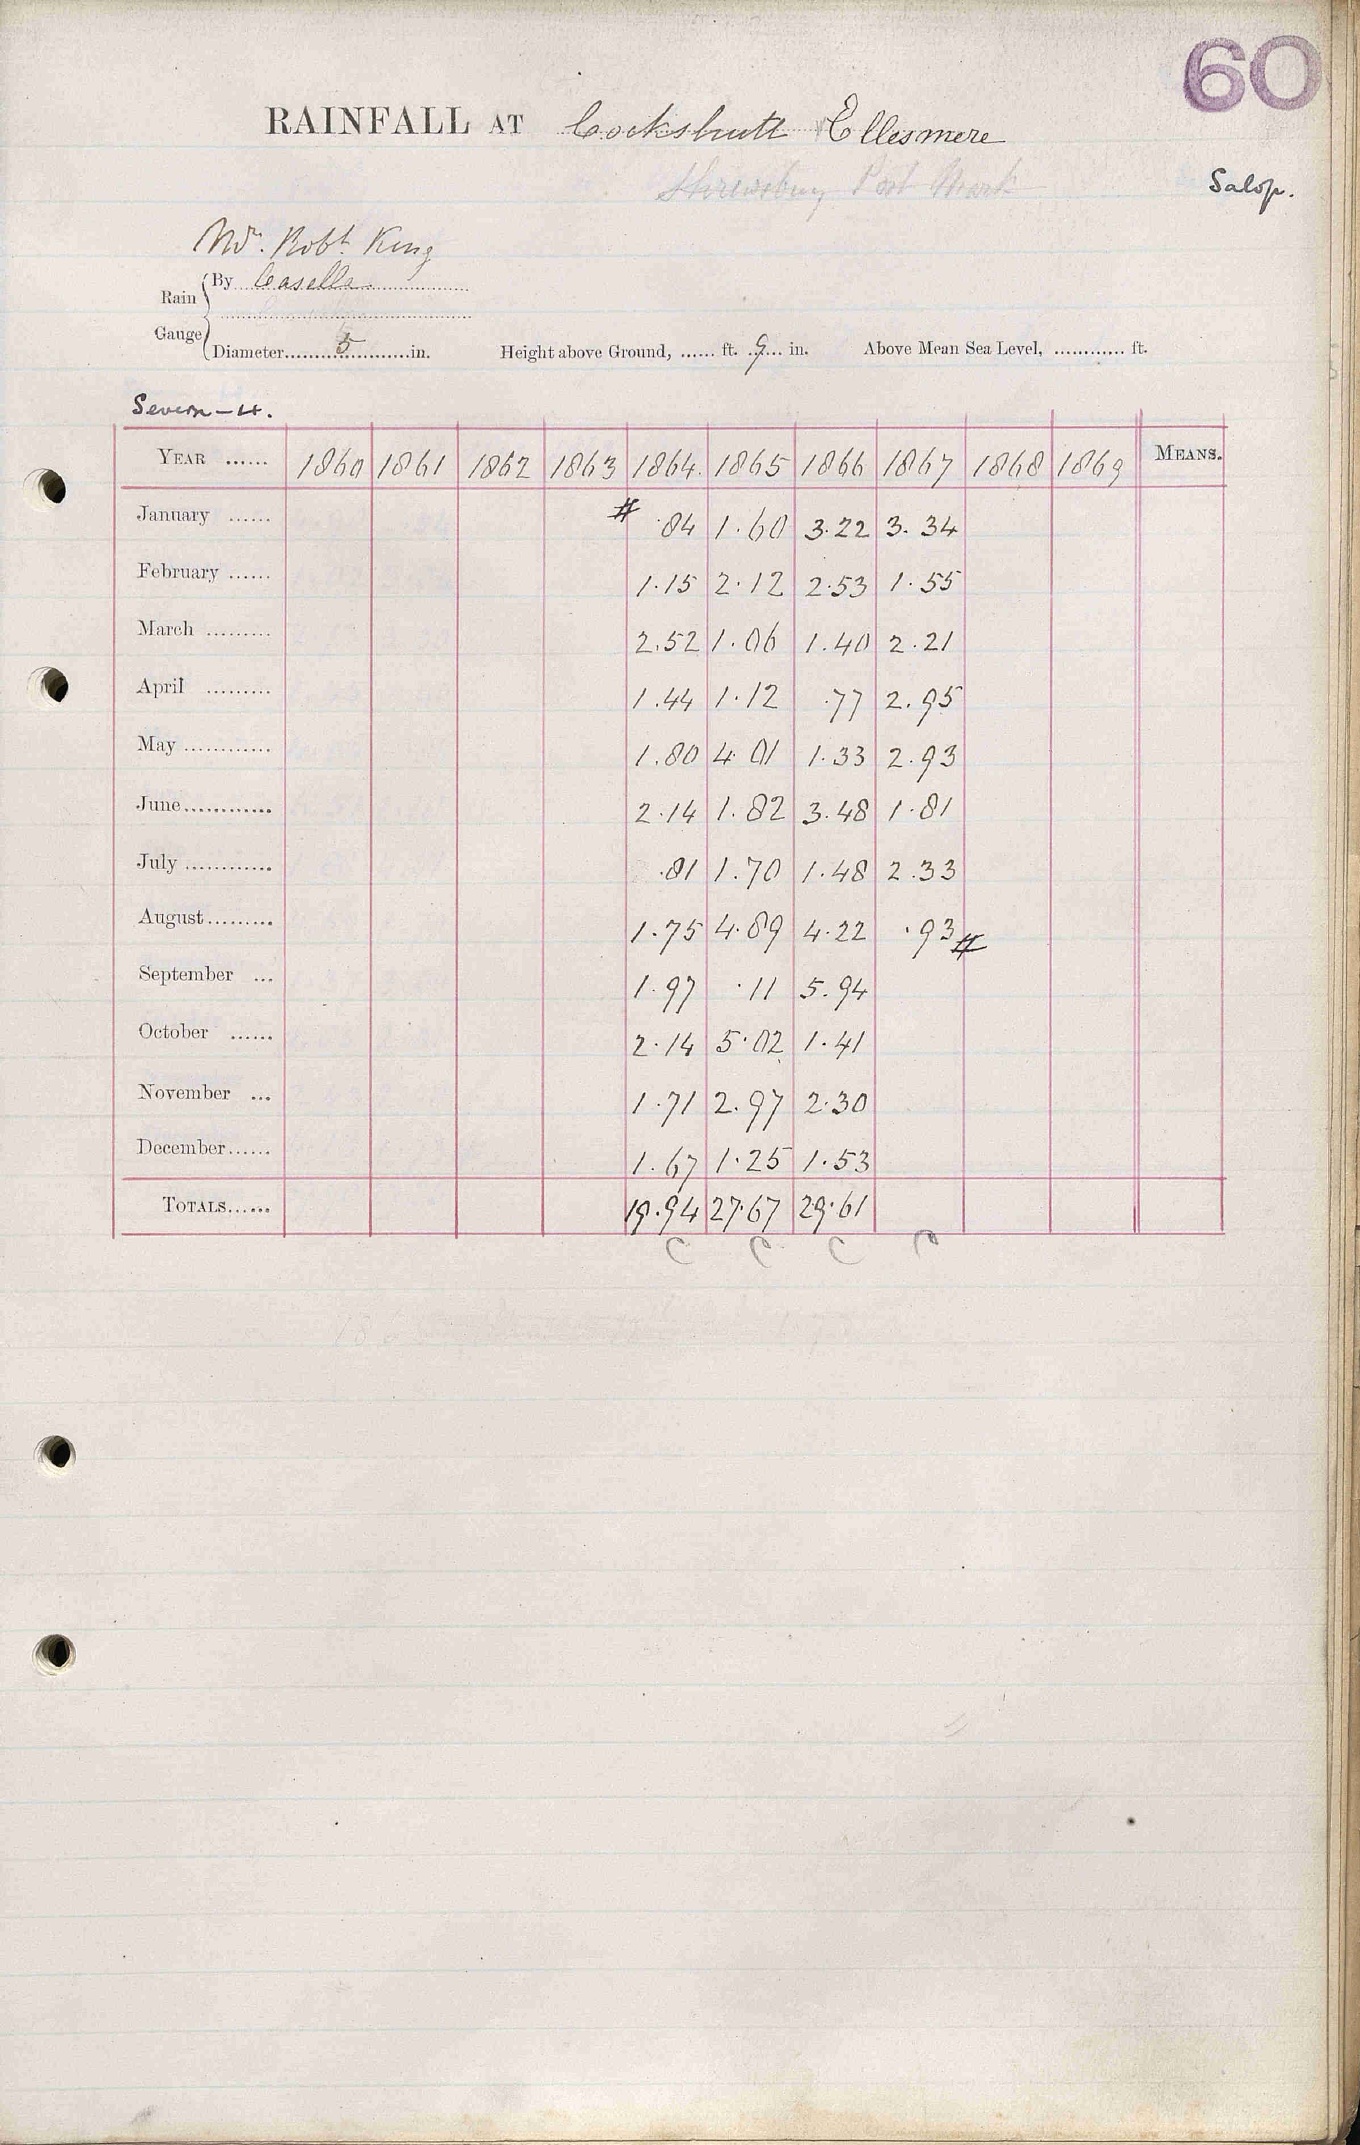 60
RAINFALL AT Cockshutt Ellesmere
Shrewsbury Post Mark
Salop.
Mr. Robt. King
Rain Gauge { By Casella
Diameter 5 in. Height above Ground, ...... ft. 9 in. Above Mean Sea Level, ............ ft.
Severn – 4.
YEAR ...... 1860 1861 1862 1863 1864 1865 1866 1867 1868 1869 MEANS.
January ...... # .84 1.60 3.22 3.34
February ...... 1.15 2.12 2.53 1.55
March ......... 2.52 1.06 1.40 2.21
April ......... 1.44 1.12 .77 2.95
May ............ 1.80 4.01 1.33 2.93
June............ 2.14 1.82 3.48 1.81
July ............ .81 1.70 1.48 2.33
August......... 1.75 4.89 4.22 .93 #
September ... 1.97 .11 5.94
October ...... 2.14 5.02 1.41
November ... 1.71 2.97 2.30
December...... 1.67 1.25 1.53
TOTALS...... 19.94 27.67 29.61
C C C C